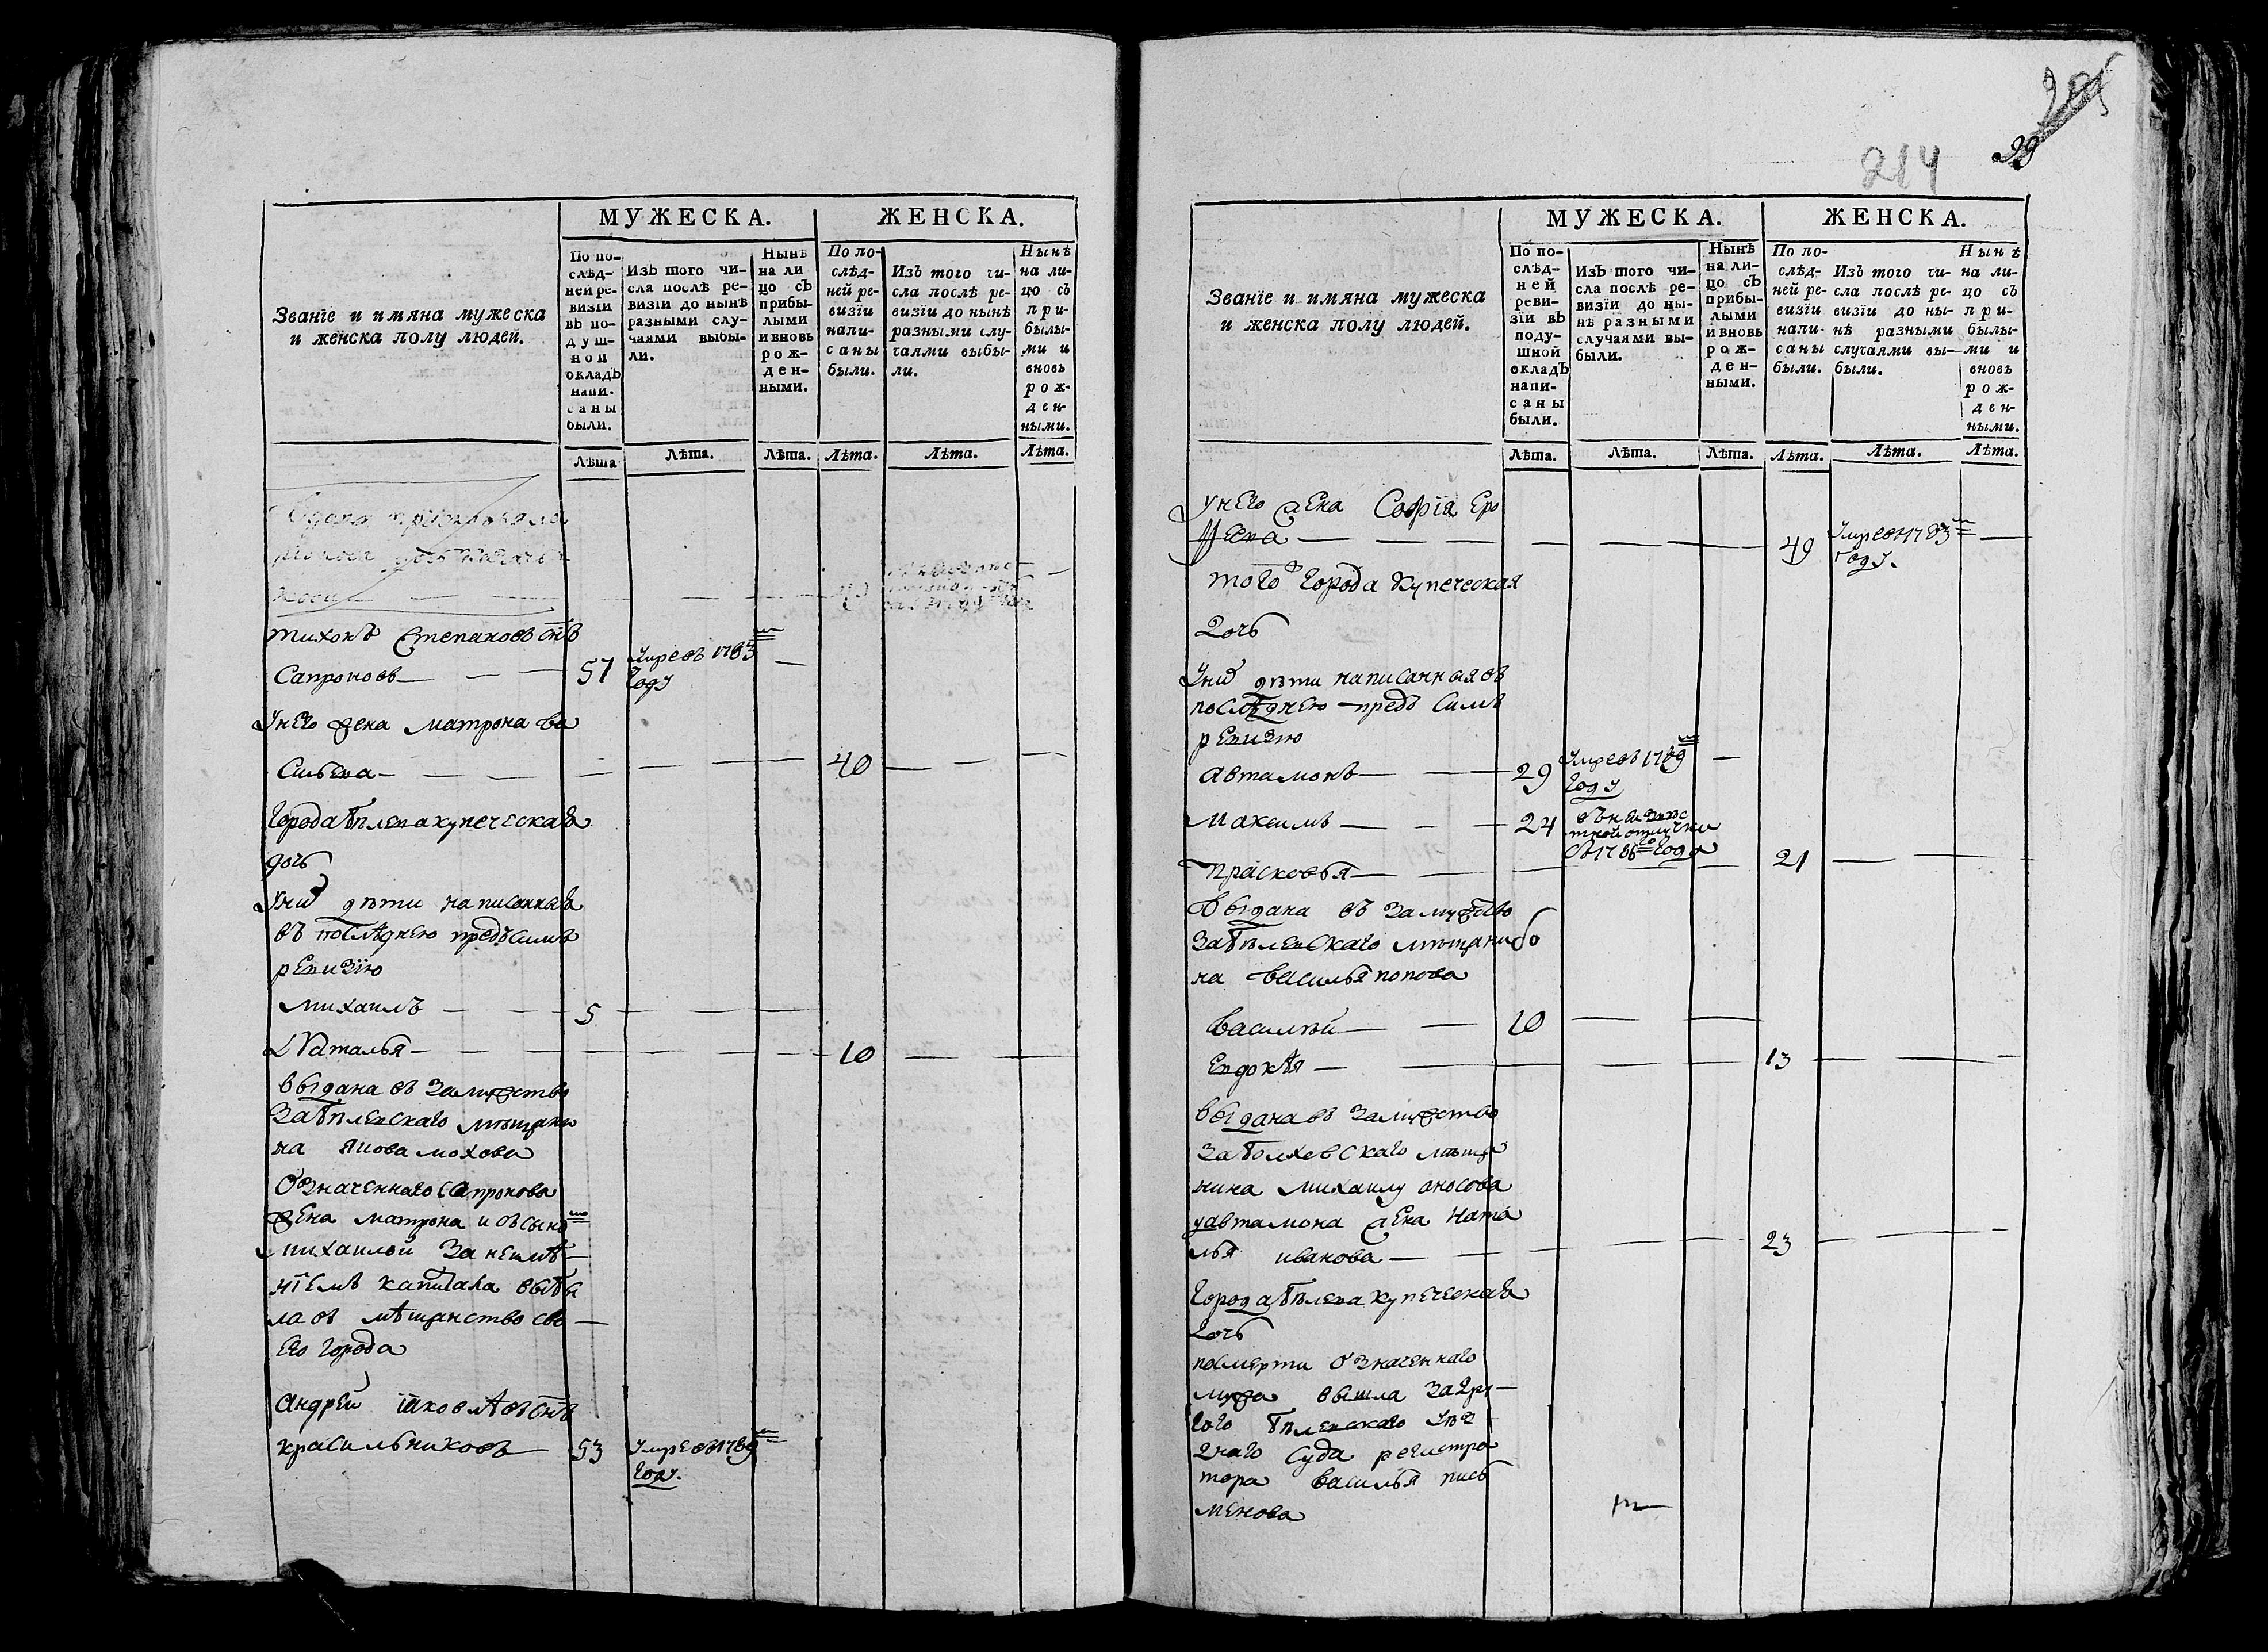 МУЖЕСКА.
ЖЕНСКА.
Званїе и имяна мужеска
и женска полу людей.
По по-
слѣд-
ней ре-
визїи
въ по-
душ-
ной
окладъ
напи-
саны
были.
Изъ того чи-
сла послѣ ре-
визїи до нынѣ
разными слу-
чаями выбы-
ли.
Нынѣ
на ли
цо съ
прибы-
лыми
и вновь
рож-
ден-
ными.
По по-
слѣд-
ней ре-
визїи
напи-
саны
были.
Изъ того чи-
сла послѣ ре-
визїи до нынѣ
разными слу-
чаями выбы-
ли.
Нынѣ
на ли-
цо съ
при-
былы-
ми и
вновь
рож-
ден-
ными.
Лѣта Лѣта. Лѣта. Лѣта. Лѣта. Лѣта.
тихонъ Степановъ снъ
Сапроновъ — — 57 Умре въ 1783м
году
Унего жена матрона ва
Сильева — — — 40 — — —
города бѣлева купеческая
дочь
Уних дѣти написанныя
въ послѣднею предъ симъ
ревизїю
михаилъ — — 5 — — —
Наталья — — — 10 — —
выдана въ замужство
за бѣлевскаго мѣщани
на якова мохова
означеннаго Сапронова
жена матрона и съсыно
михаилой за неимѣ—
нїемъ капитала выбы
ла въ мѣщанство сво—
его города
Андрей їаковлѣвъ снъ
красильниковъ — 53 Умре въ 1789м
году.
214
МУЖЕСКА.
ЖЕНСКА.
Званїе и имяна мужеска
и женска полу людей.
По по-
слѣд-
ней
реви-
зїи въ
поду-
шной
окладъ
напи-
саны
были.
Изъ того чи-
сла послѣ ре-
визїи до ны-
нѣ разными
случаями вы-
были.
Нынѣ
на ли-
цо съ
прибы-
лыми
и вновь
рож-
ден-
ными.
По по-
слѣд-
ней ре-
визїи
напи-
саны
были.
Изъ того чи-
сла послѣ ре-
визїи до ны-
нѣ разными
случаями вы-
были.
Нынѣ
на ли-
цо съ
при-
былы-
ми и
вновь
рож-
ден-
ными.
Лѣта. Лѣта. Лѣта. Лѣта. Лѣта. Лѣта.
унего жена Софїя Еро
фѣева — — — 49 Умре въ 1783м
году.
того города купеческая
дочь
Уних дѣти написанныя въ
послѣднею предъ симъ
ревизїю
автамонъ — — 29 Умре въ 1789м —
году
максимъ — — 24 въ неизвѣс
тной отлучки
съ 1786го года
прасковья — — — 21 — —
выдана въ замужство
за бѣлевскаго мѣщани
на василья попова
василей — — 10 — —
Евдокѣя — — — 13 — —
выдана въ замужство
за болховскаго мѣща
нина михаилу аносова
уавтамона жена ната
лья иванова — — — 23 — —
города бѣлева купеческая
дочь
посмерти означеннаго
мужа вышла за дру—
гого бѣлевскаго уѣз
днаго суда регистра
тора василья пись
менова